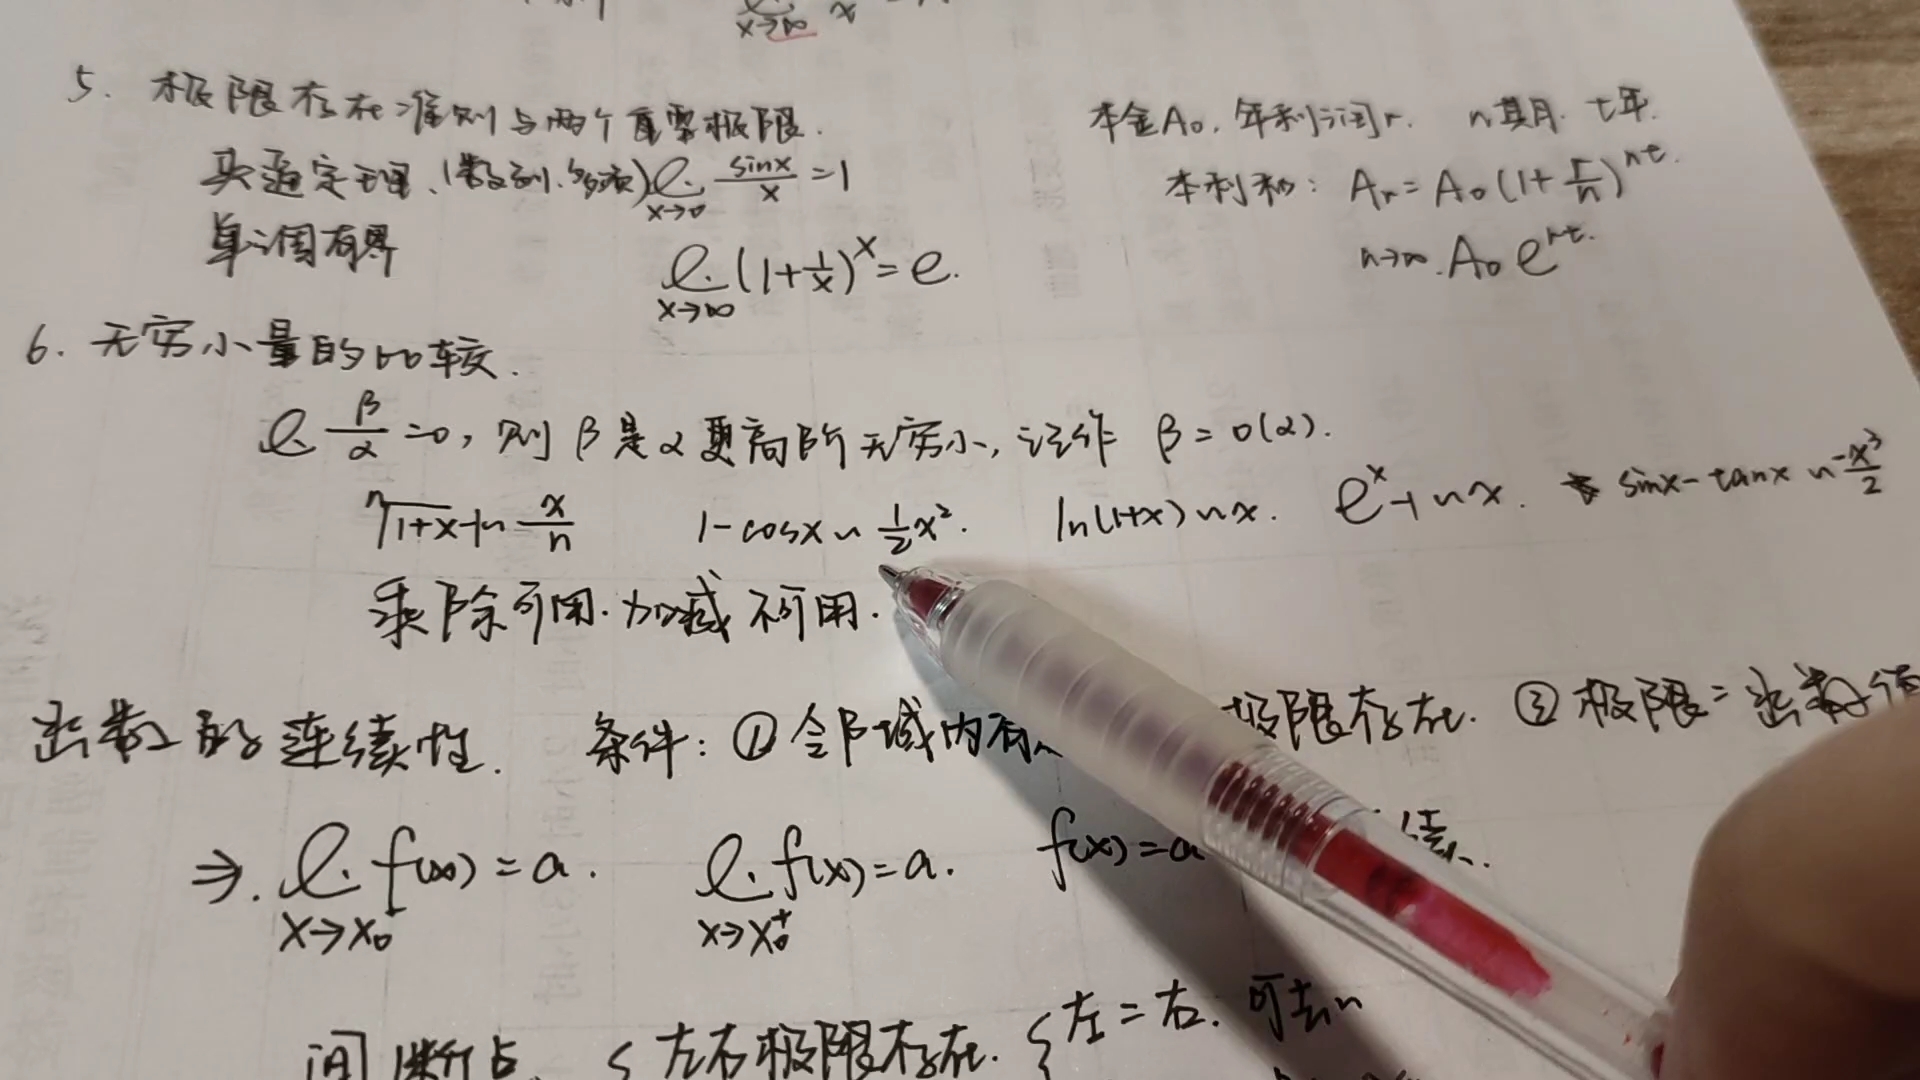 x→∞ x
5. 极限存在准则与两个重要极限.
夹逼定理.(数列.多项) lim x→0 sinx/x = 1
单调有界
lim x→∞ (1+1/x)^x = e.
本金A₀, 年利润r. n期月. t年.
本利和: Aₙ = A₀(1+r/n)^nt.
n→∞. A₀e^rt.
6. 无穷小量的比较.
lim β/α =0, 则β是α更高阶无穷小, 记作 β=o(α).
ⁿ√1+x -1~x/n 1-cosx~1/2x². ln(1+x)~x. e^x-1~x. sinx-tanx~-x³/2
乘除可用.加减不可用.
函数的连续性. 条件: ① 令β域内有 极限存在. ③ 极限=函数值
⇒. lim x→x₀⁻ f(x)=a. lim x→x₀⁺ f(x)=a. f(x)=a 续.
间断点. { 左右极限存在. { 左=右. 可去